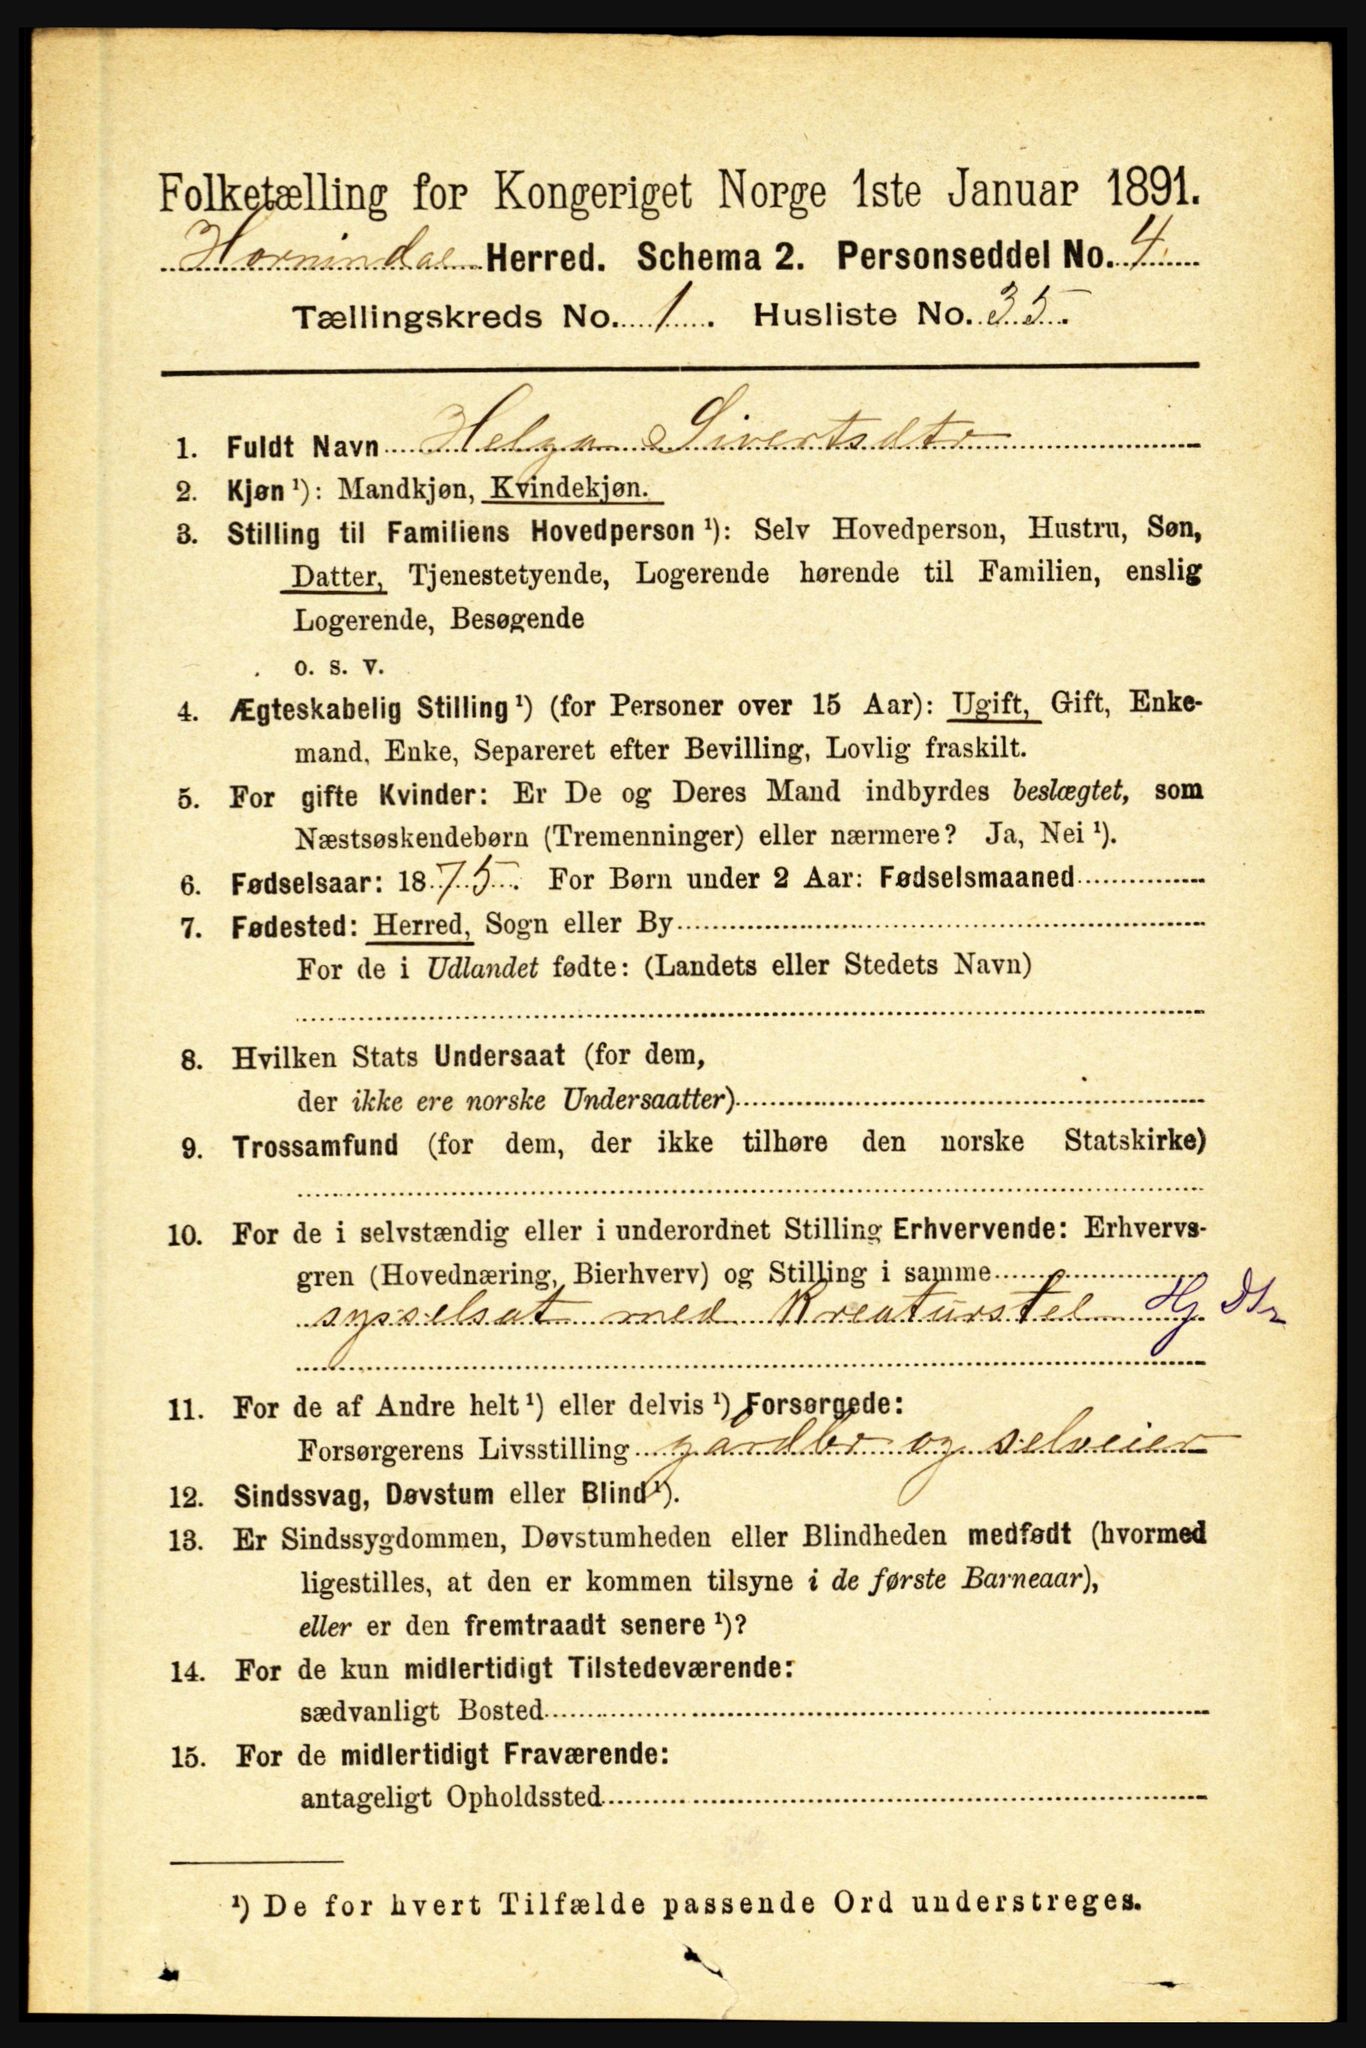 Folketælling for Kongeriget Norge 1ste Januar 1891.
Hornindal Herred. Schema 2. Personseddel No. 4
Tællingskreds No. 1. Husliste No. 35.
1. Fuldt Navn Helga Sivertsdtr
2. Kjøn ¹): Mandkjøn, Kvindekjøn.
3. Stilling til Familiens Hovedperson ¹): Selv Hovedperson, Hustru, Søn,
Datter, Tjenestetyende, Logerende hørende til Familien, enslig
Logerende, Besøgende
o. s. v.
4. Ægteskabelig Stilling ¹) (for Personer over 15 Aar): Ugift, Gift, Enke-
mand, Enke, Separeret efter Bevilling, Lovlig fraskilt.
5. For gifte Kvinder: Er De og Deres Mand indbyrdes beslægtet, som
Næstsøskendebørn (Tremenninger) eller nærmere? Ja, Nei ¹).
6. Fødselsaar: 1875. For Børn under 2 Aar: Fødselsmaaned
7. Fødested: Herred, Sogn eller By
For de i Udlandet fødte: (Landets eller Stedets Navn)
8. Hvilken Stats Undersaat (for dem,
der ikke ere norske Undersaatter)
9. Trossamfund (for dem, der ikke tilhøre den norske Statskirke)
10. For de i selvstændig eller i underordnet Stilling Erhvervende: Erhvervs-
gren (Hovednæring, Bierhverv) og Stilling i samme
sysselsat med Kreaturstel Hj Dtr
11. For de af Andre helt ¹) eller delvis ¹) Forsørgede:
Forsørgerens Livsstilling gårdbr og selveier
12. Sindssvag, Døvstum eller Blind ¹).
13. Er Sindssygdommen, Døvstumheden eller Blindheden medfødt (hvormed
ligestilles, at den er kommen tilsyne i de første Barneaar),
eller er den fremtraadt senere ¹)?
14. For de kun midlertidigt Tilstedeværende:
sædvanligt Bosted
15. For de midlertidigt Fraværende:
antageligt Opholdssted
¹) De for hvert Tilfælde passende Ord understreges.